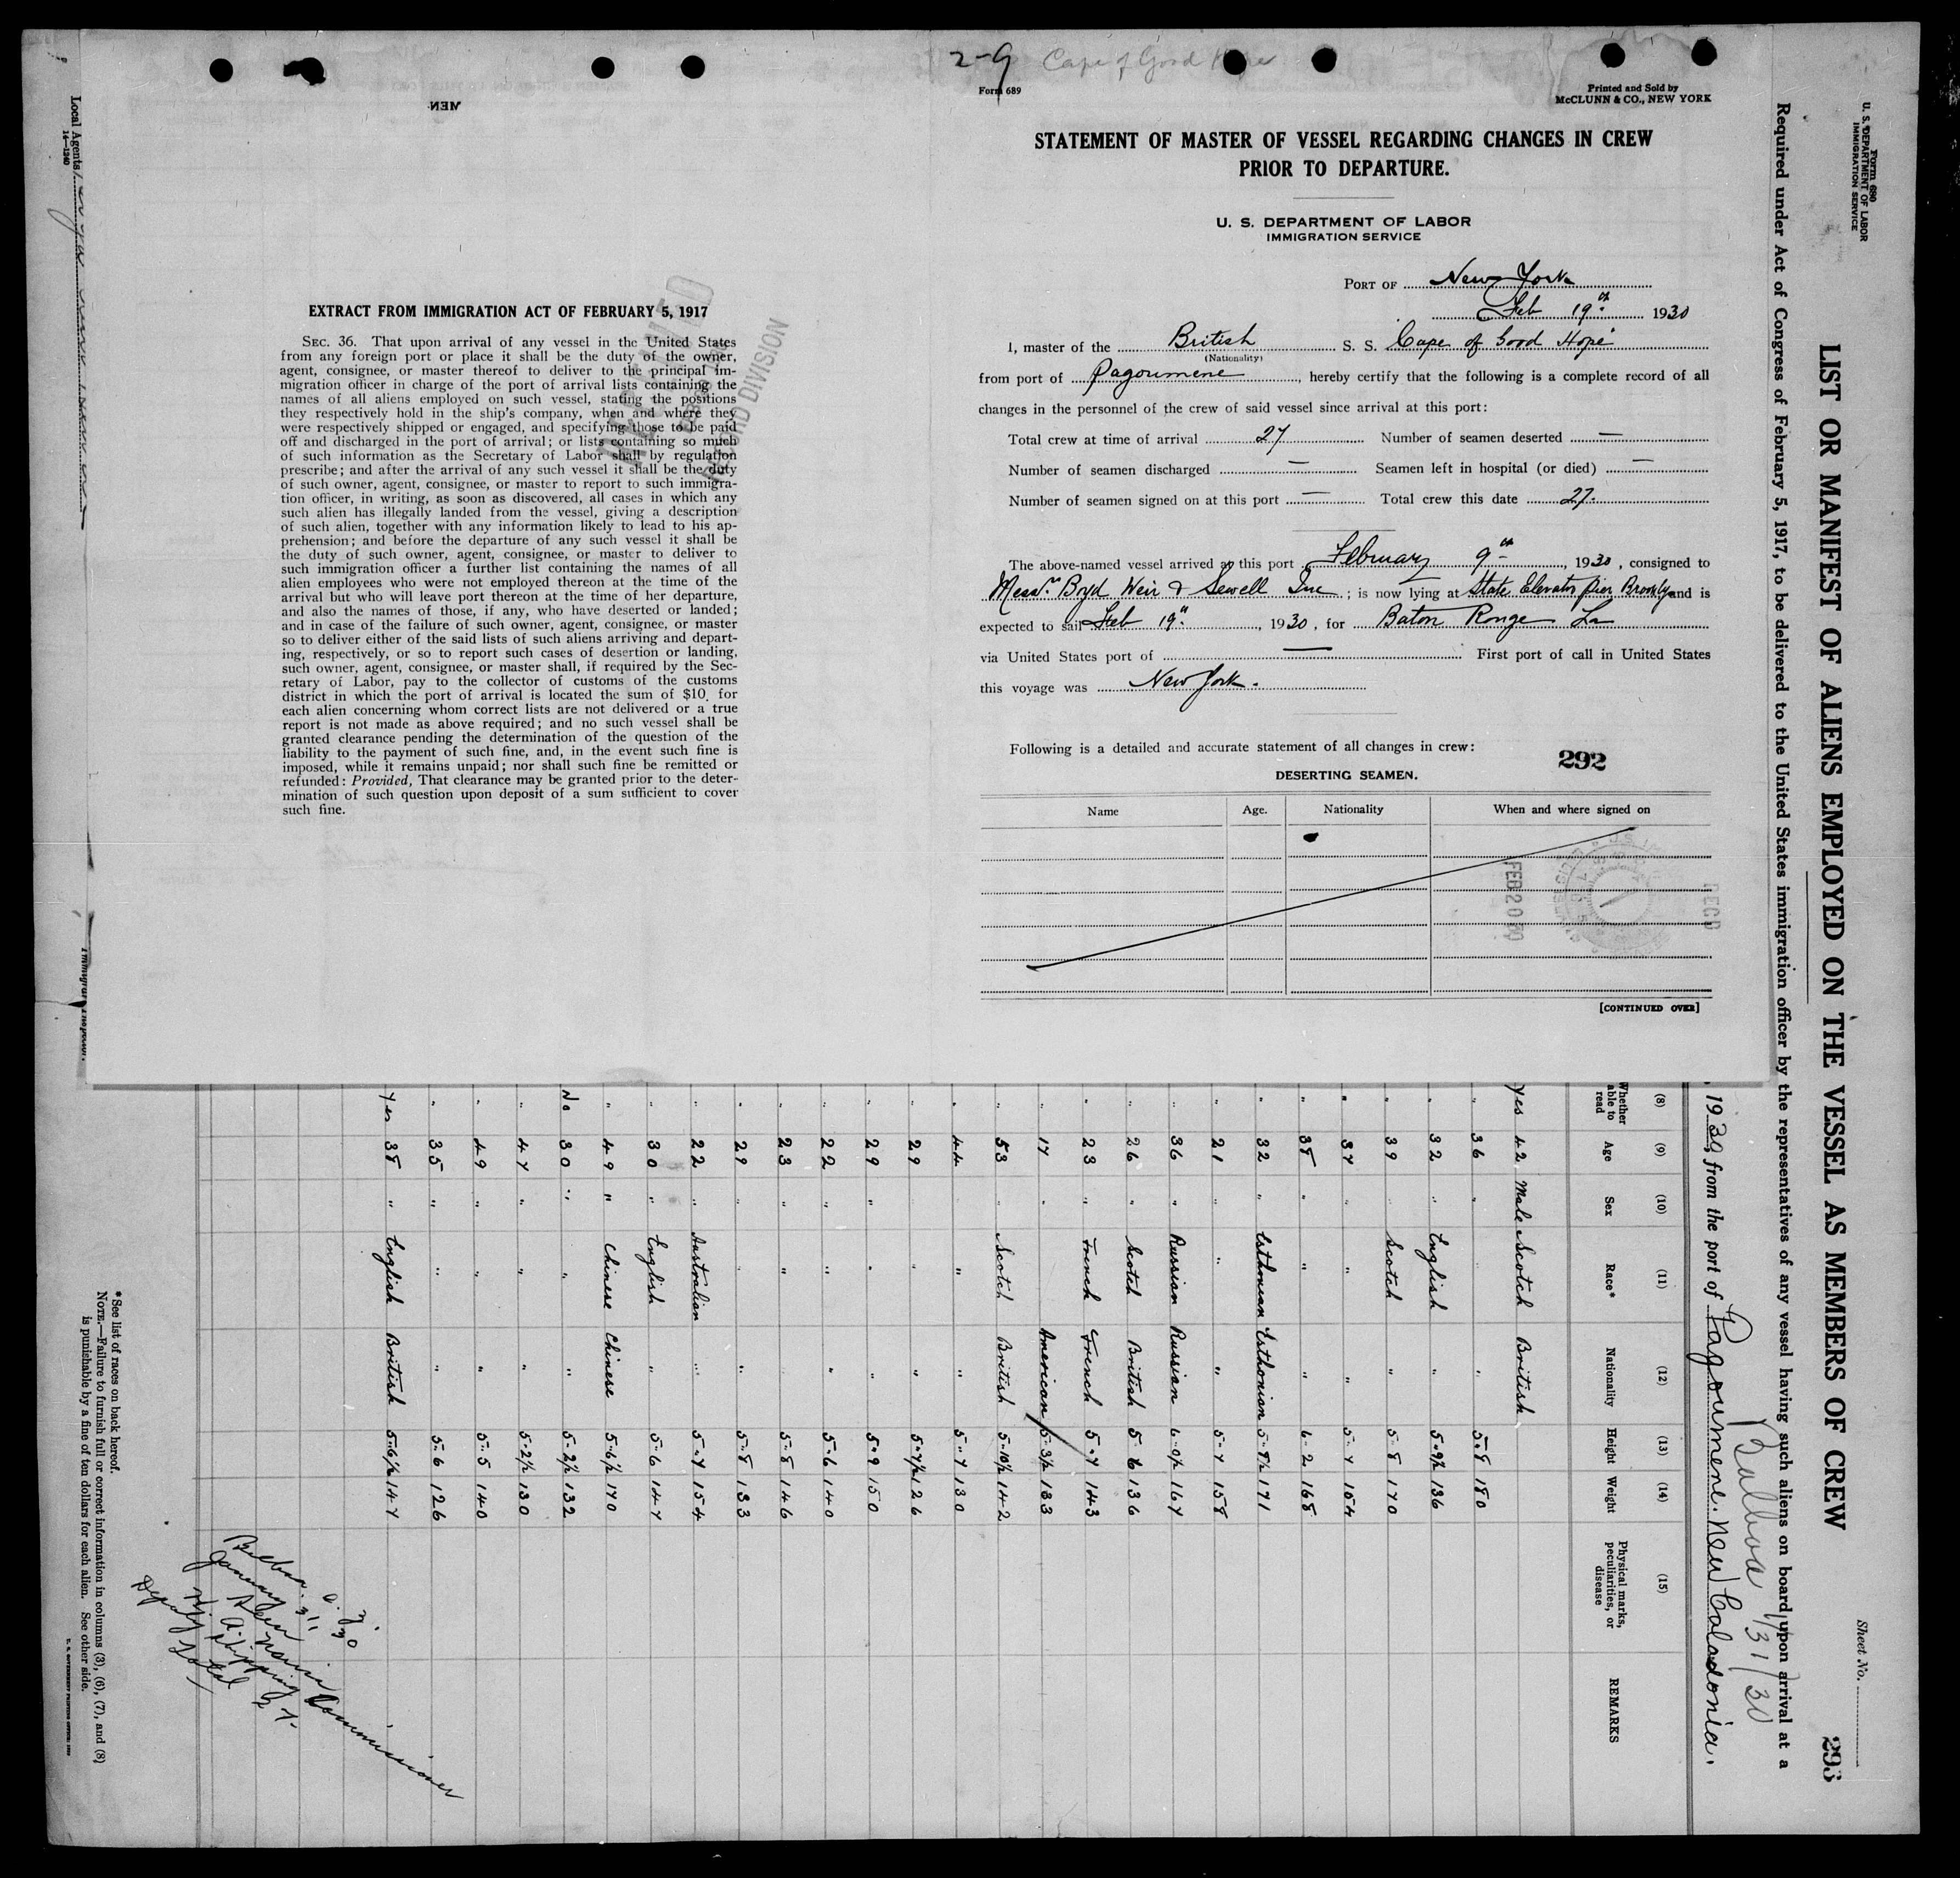 2-9 Cape of Good Hope
Form 689
Printed and Sold by
McCLUNN & CO., NEW YORK
STATEMENT OF MASTER OF VESSEL REGARDING CHANGES IN CREW
PRIOR TO DEPARTURE.
U. S. DEPARTMENT OF LABOR
IMMIGRATION SERVICE
PORT OF New York
Feb 19th 1930
I, master of the British S. S. Cape of Good Hope
(Nationality)
from port of Pagoumene, hereby certify that the following is a complete record of all
changes in the personnel of the crew of said vessel since arrival at this port:
Total crew at time of arrival 27 Number of seamen deserted —
Number of seamen discharged — Seamen left in hospital (or died) —
Number of seamen signed on at this port — Total crew this date 27.
The above-named vessel arrived at this port February 9th, 1930, consigned to
Messrs. Boyd Weir & Sewell Inc; is now lying at State Elevator pier Brooklyn and is
expected to sail Feb 19th, 1930, for Baton Rouge La
via United States port of — First port of call in United States
this voyage was New York.
Following is a detailed and accurate statement of all changes in crew:
292
DESERTING SEAMEN.
Name Age. Nationality When and where signed on
FEB 20 30
RECD
[CONTINUED OVER]
MEN.
EXTRACT FROM IMMIGRATION ACT OF FEBRUARY 5, 1917
SEC. 36. That upon arrival of any vessel in the United States
from any foreign port or place it shall be the duty of the owner,
agent, consignee, or master thereof to deliver to the principal im-
migration officer in charge of the port of arrival lists containing the
names of all aliens employed on such vessel, stating the positions
they respectively hold in the ship's company, when and where they
were respectively shipped or engaged, and specifying those to be paid
off and discharged in the port of arrival; or lists containing so much
of such information as the Secretary of Labor shall by regulation
prescribe; and after the arrival of any such vessel it shall be the duty
of such owner, agent, consignee, or master to report to such immigra-
tion officer, in writing, as soon as discovered, all cases in which any
such alien has illegally landed from the vessel, giving a description
of such alien, together with any information likely to lead to his ap-
prehension; and before the departure of any such vessel it shall be
the duty of such owner, agent, consignee, or master to deliver to
such immigration officer a further list containing the names of all
alien employees who were not employed thereon at the time of the
arrival but who will leave port thereon at the time of her departure,
and also the names of those, if any, who have deserted or landed;
and in case of the failure of such owner, agent, consignee, or master
so to deliver either of the said lists of such aliens arriving and depart-
ing, respectively, or so to report such cases of desertion or landing,
such owner, agent, consignee, or master shall, if required by the Sec-
retary of Labor, pay to the collector of customs of the customs
district in which the port of arrival is located the sum of $10 for
each alien concerning whom correct lists are not delivered or a true
report is not made as above required; and no such vessel shall be
granted clearance pending the determination of the question of the
liability to the payment of such fine, and, in the event such fine is
imposed, while it remains unpaid; nor shall such fine be remitted or
refunded: Provided, That clearance may be granted prior to the deter-
mination of such question upon deposit of a sum sufficient to cover
such fine.
DIVISION
Form 680
U. S. DEPARTMENT OF LABOR
IMMIGRATION SERVICE
Sheet No.
LIST OR MANIFEST OF ALIENS EMPLOYED ON THE VESSEL AS MEMBERS OF CREW 293
Required under Act of Congress of February 5, 1917, to be delivered to the United States immigration officer by the representatives of any vessel having such aliens on board upon arrival at a
Balboa 1/31/30
, 1930, from the port of Pagoumene. New Caladonia.
(8) (9) (10) (11) (12) (13) (14) (15)
Whether able to read Age Sex Race* Nationality Height Weight Physical marks, peculiarities, or disease REMARKS
Yes 42 Male Scotch British
" 36 " " " 5-8 180
" 32 " English " 5-9½ 136
" 39 " Scotch " 5-8 170
" 37 " " " 5-7 154
" 38 " " " 6-2 168
" 32 " Esthonian Esthonian 5-8½ 171
" 21 " " " 5-7 158
" 36 " Russian Russian 6-0½ 167
" 26 " Scotch British 5-6 136
" 23 " French French 5-7 143
" 17 " American 5-3½ 133
" 53 " Scotch British 5-10½ 142
" 44 " " " 5-7 130
" 29 " " " 5-7½ 126
" 29 " " " 5-9 150
" 22 " " " 5-6 140
" 23 " " " 5-8 146
" 29 " " " 5-8 133
" 22 " Australian " 5-7 154
" 30 " English " 5-6 147
" 49 " Chinese Chinese 5-6½ 170
No 30 " " " 5-2½ 132
" 47 " " " 5-2½ 130
" 49 " " " 5-5 140
" 35 " " " 5-6 126
Yes 38 " English British 5-6½ 147
Balboa. C. Z.
January 31 30
Shipping Commissioner
Deputy
Total 27
*See list of races on back hereof.
NOTE.—Failure to furnish full or correct information in columns (3), (6), (7), and (8)
is punishable by a fine of ten dollars for each alien. See other side.
Local Agents
14—1240
Immigrant Inspector.